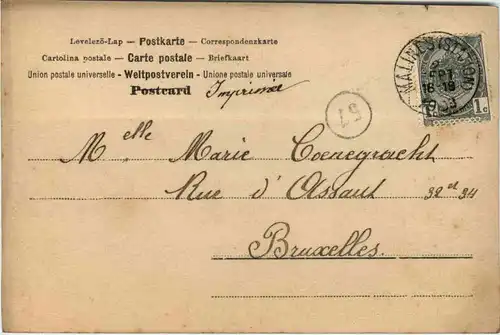 Levelező-Lap — Postkarte — Correspondenzkarte
Cartolina postale — Carte postale — Briefkaart
Union postale universelle — Weltpostverein — Unione postale universale
Postcard Imprimé
MALINES (STATION)
SEPT
1c
51
Melle Marie Coenegracht
Rue d'Assaut 32 et 34
Bruxelles.